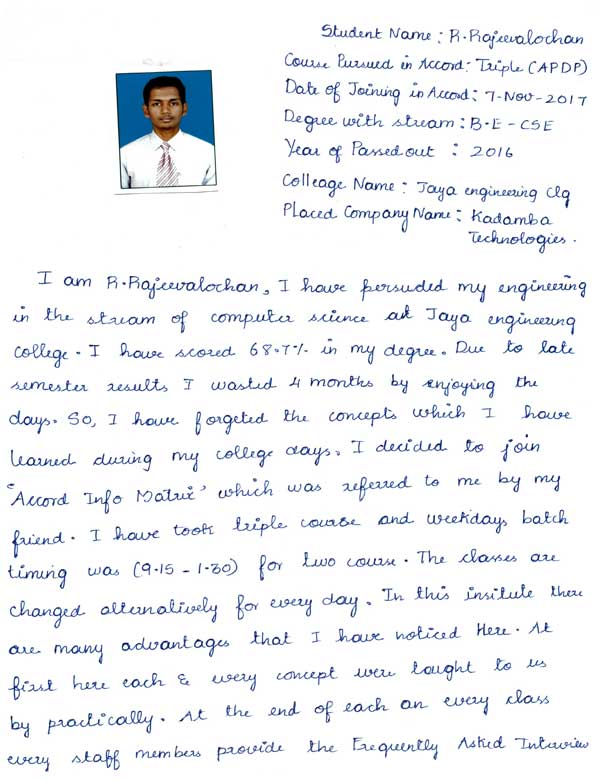 Student Name : R.Rajeevalochan
Course Pursued in Accord : Triple (APDP)
Date of Joining in Accord : 7-Nov-2017
Degree with stream : B.E - CSE
Year of Passed out : 2016
Colleage Name : Jaya engineering clg
Placed Company Name : Kadamba
Technologies.
I am R.Rajeevalochan, I have persuded my engineering
in the stream of computer science at Jaya engineering
college. I have scored 68.7% in my degree. Due to late
semester results I wasted 4 months by enjoying the
days. So, I have forgeted the concepts which I have
learned during my college days. I decided to join
'Accord Info Matrix' which was referred to me by my
friend. I have took triple course and weekdays batch
timing was (9.15 - 1.30) for two course. The classes are
changed alternatively for every day. In this insitute there
are many advantages that I have noticed Here. At
first here each & every concept were taught to us
by practically. At the end of each an every class
every staff members provide the Frequently Asked Interview